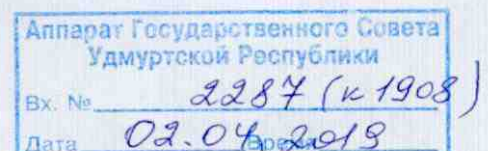 Аппарат Государственного Совета
Удмуртской Республики
Вх. № 2287 (к 1908)
Дата 02.04.2019 Время